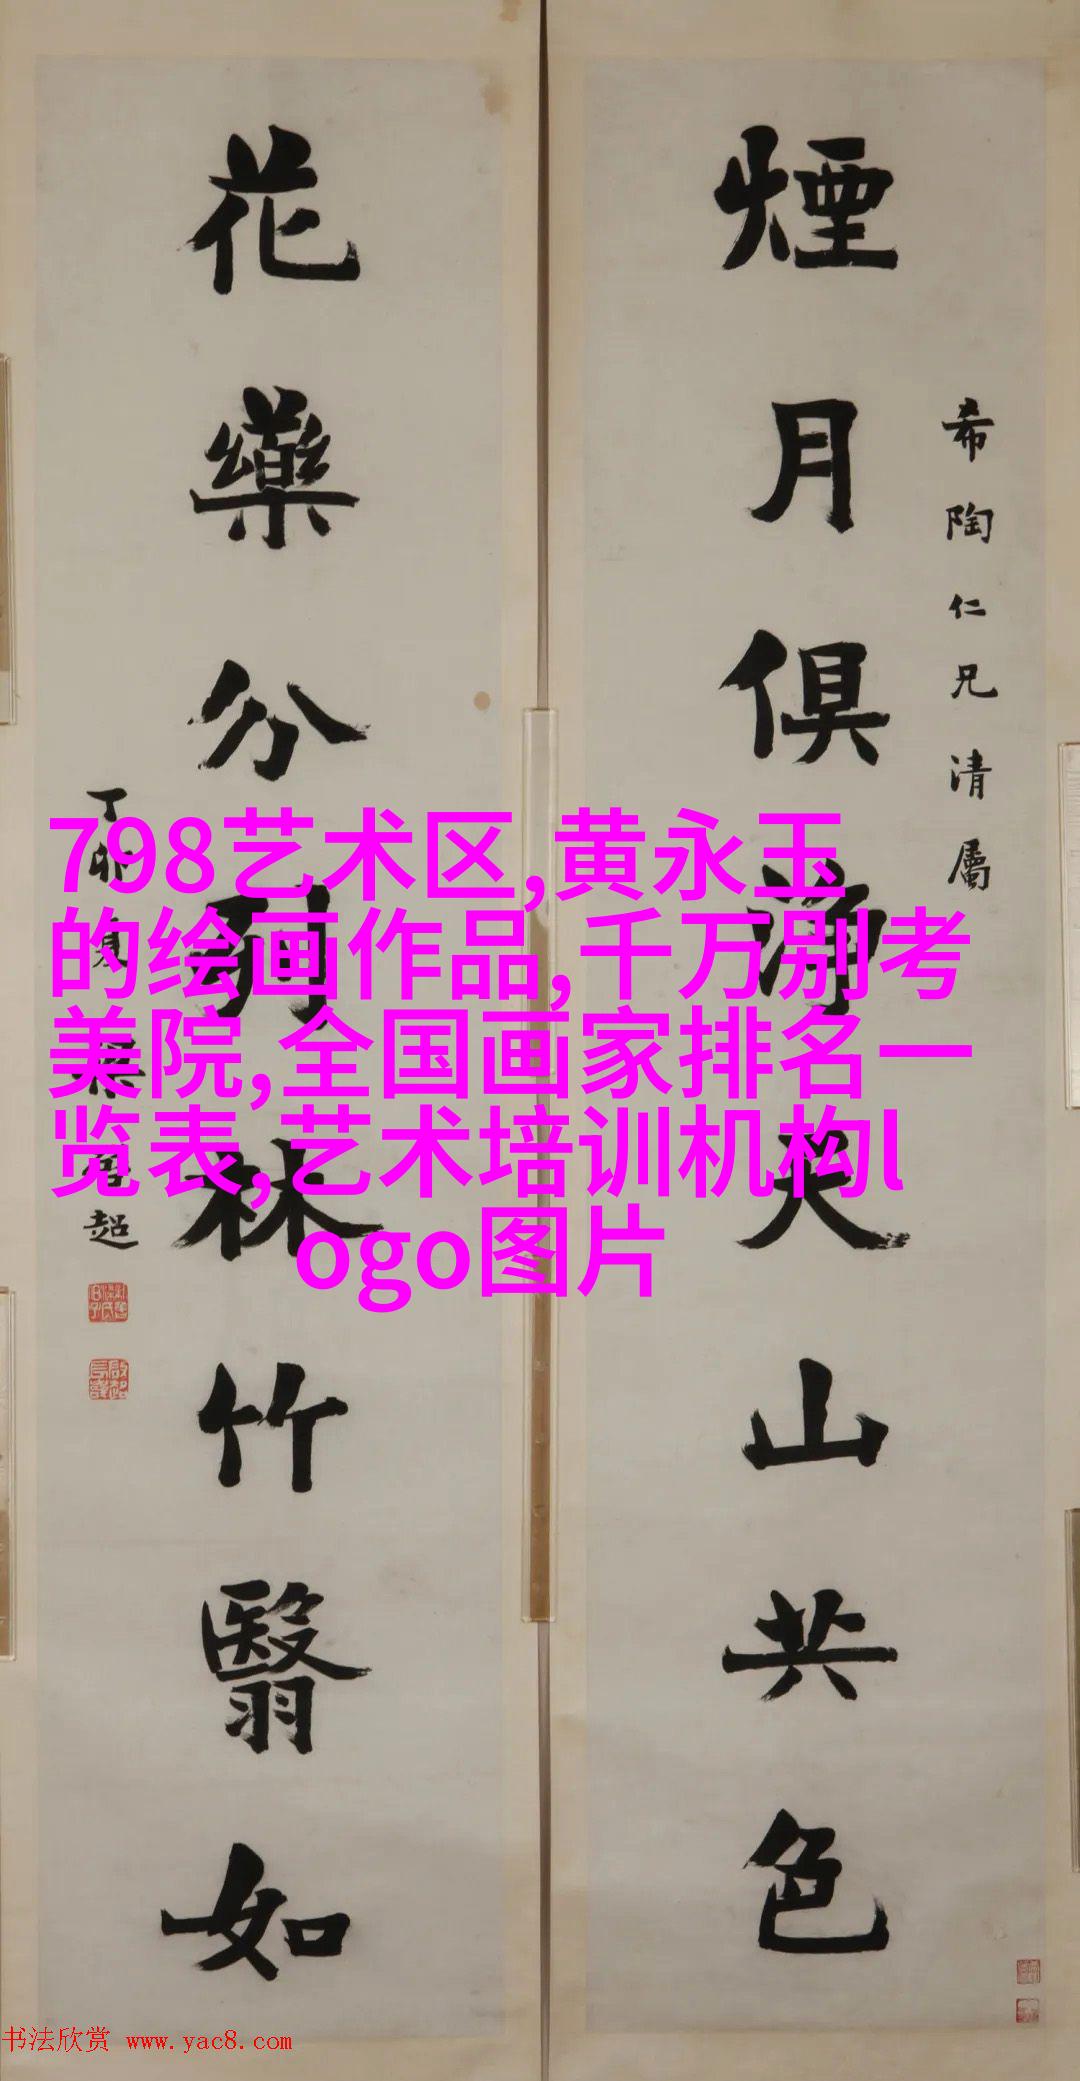 希陶仁兄清屬
煙月俱淨天山共色
花藥分列林竹翳如
丁卯夏梁啓超
798艺术区,黄永玉
的绘画作品,千万别考
美院,全国画家排名一
览表,艺术培训机构l
ogo图片
书法欣赏 www.yac8.com